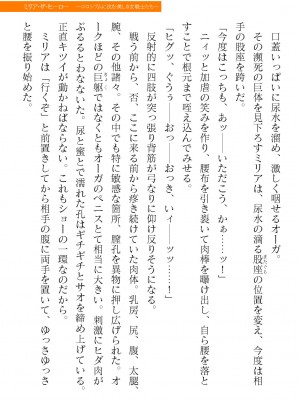 ミリア・ザ・ヒーロー
口蓋いっぱいに尿水を溜め、激しく咽せるオーガ。
その瀕死の巨体を見下ろすミリアは、尿水の滴る股座の位置を変え、今度は相
手の股座を跨いだ。
「今度はこっちも、あッ――いただこう、かぁ……ッ！」
ニィッと加虐の笑みを作り、腰布を引き裂いて肉棒を曝け出し、自ら腰を落と
すことで根元まで咥え込んでみせる。
「ヒグッ、ぐうぅ――おっ　　おっき、いィ――ッッ……！」
反射的に四肢が突っ張り背筋が弓なりに仰け反りそうになる。
戦う前から、否、ここに来る前から疼き続けていた肉体。乳房、尻、腹、太腿、
腕、その他諸々。その中でも特に敏感な箇所、膣孔を異物に押し広げられた。オ
ークほどの巨躯ではなくともオーガのペニスとて相当に大きい。刺激にヒダ肉が
ぶるるとわななき、尿と蜜とで濡れた孔はギチギチとサオを締め上げている。
正直キツイが動かねばならない。これもショーの一環なのだから。
ミリアは「行くぞ」と前置きしてから相手の腹に両手を置いて、ゆっさゆっさ
と腰を振り始めた。